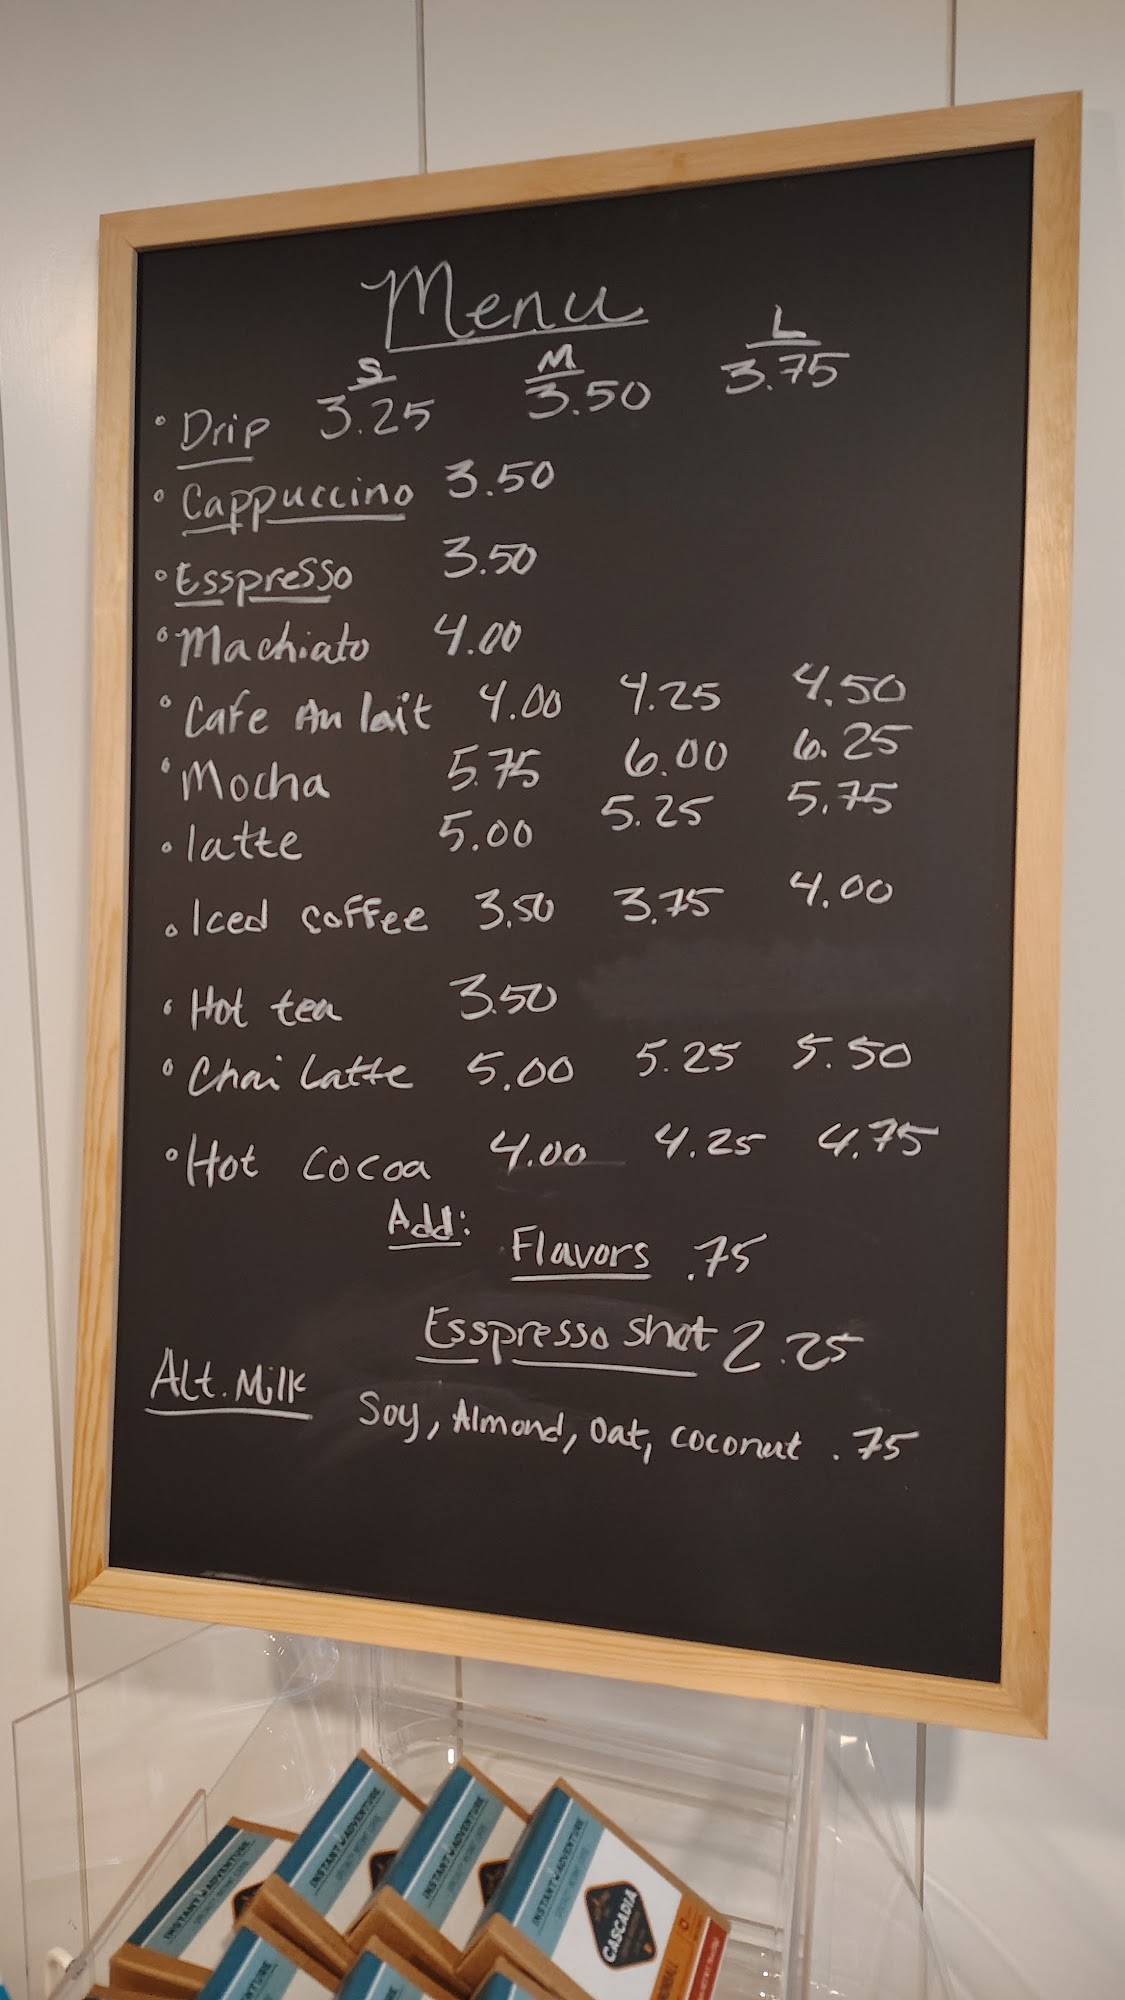 Menu
S M L
Drip 3.25 3.50 3.75
Cappuccino 3.50
Esspresso 3.50
Machiato 4.00
Cafe Au lait 4.00 4.25 4.50
Mocha 5.75 6.00 6.25
latte 5.00 5.25 5.75
Iced coffee 3.50 3.75 4.00
Hot tea 3.50
Chai Latte 5.00 5.25 5.50
Hot cocoa 4.00 4.25 4.75
Add: Flavors .75
Esspresso shot 2.25
Alt. Milk Soy, Almond, Oat, coconut .75
INSTANT ADVENTURE
INSTANT ADVENTURE
INSTANT ADVENTURE
INSTANT ADVENTURE
CASCADIA